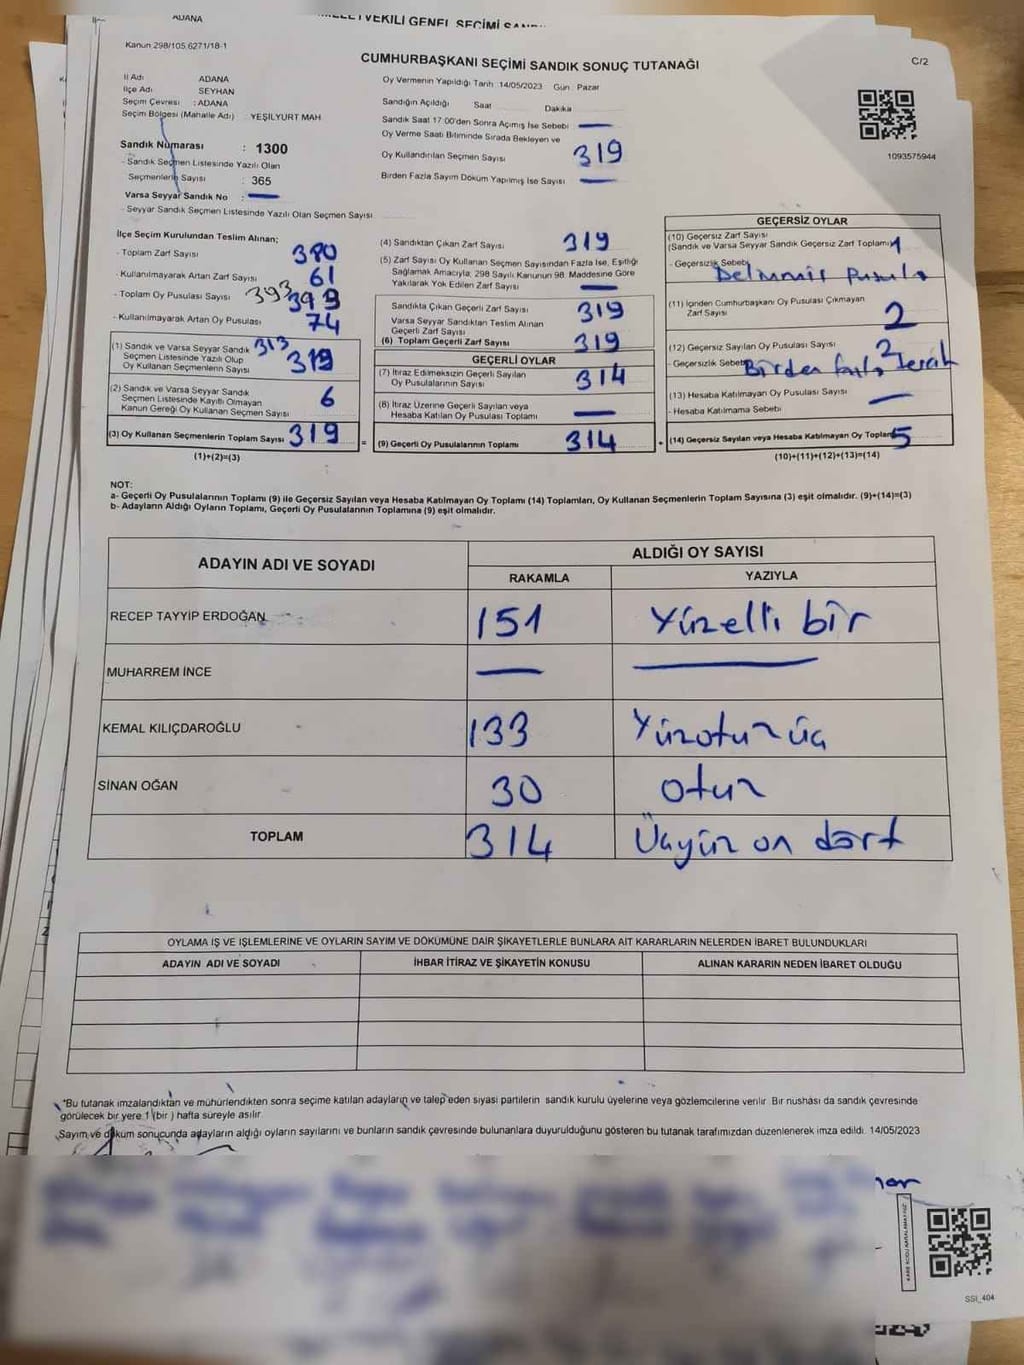 ADANA
VEKİLİ GENEL SEÇİMİ
Kanun 298/105,6271/18-1
CUMHURBAŞKANI SEÇİMİ SANDIK SONUÇ TUTANAĞI
C/2
İl Adı ADANA
İlçe Adı SEYHAN
Seçim Çevresi : ADANA
Seçim Bölgesi (Mahalle Adı) YEŞİLYURT MAH
Sandık Numarası : 1300
- Sandık Seçmen Listesinde Yazılı Olan
Seçmenlerin Sayısı : 365
Varsa Seyyar Sandık No : —
- Seyyar Sandık Seçmen Listesinde Yazılı Olan Seçmen Sayısı
Oy Vermenin Yapıldığı Tarih :14/05/2023 Gün : Pazar
Sandığın Açıldığı Saat Dakika
Sandık Saat 17:00'den Sonra Açımış İse Sebebi —
Oy Verme Saati Bitiminde Sırada Bekleyen ve
Oy Kullandırılan Seçmen Sayısı 319
Birden Fazla Sayım Döküm Yapılmış İse Sayısı —
1093575944
İlçe Seçim Kurulundan Teslim Alınan;
- Toplam Zarf Sayısı 380
- Kullanılmayarak Artan Zarf Sayısı 61
- Toplam Oy Pusulası Sayısı 393
- Kullanılmayarak Artan Oy Pusulası 74
(1) Sandık ve Varsa Seyyar Sandık 313
Seçmen Listesinde Yazılı Olup
Oy Kullanan Seçmenlerin Sayısı
(2) Sandık ve Varsa Seyyar Sandık
Seçmen Listesinde Kayıtlı Olmayan 6
Kanun Gereği Oy Kullanan Seçmen Sayısı
(3) Oy Kullanan Seçmenlerin Toplam Sayısı 319
(1)+(2)=(3)
(4) Sandıktan Çıkan Zarf Sayısı 319
(5) Zarf Sayısı Oy Kullanan Seçmen Sayısından Fazla İse, Eşitliği
Sağlamak Amacıyla, 298 Sayılı Kanunun 98. Maddesine Göre
Yakılarak Yok Edilen Zarf Sayısı —
Sandıkta Çıkan Geçerli Zarf Sayısı 319
Varsa Seyyar Sandıktan Teslim Alınan
Geçerli Zarf Sayısı
(6) Toplam Geçerli Zarf Sayısı 319
GEÇERLİ OYLAR
(7) İtiraz Edilmeksizin Geçerli Sayılan
Oy Pusulalarının Sayısı 314
(8) İtiraz Üzerine Geçerli Sayılan veya
Hesaba Katılan Oy Pusulası Toplamı —
= (9) Geçerli Oy Pusulalarının Toplamı 314
GEÇERSİZ OYLAR
(10) Geçersiz Zarf Sayısı
(Sandık ve Varsa Seyyar Sandık Geçersiz Zarf Toplamı) 1
- Geçersizlik Sebebi
(11) İçinden Cumhurbaşkanı Oy Pusulası Çıkmayan
Zarf Sayısı 2
(12) Geçersiz Sayılan Oy Pusulası Sayısı 2
- Geçersizlik Sebebi Birden fazla Tercih
(13) Hesaba Katılmayan Oy Pusulası Sayısı —
- Hesaba Katılmama Sebebi
+ (14) Geçersiz Sayılan veya Hesaba Katılmayan Oy Toplamı 5
(10)+(11)+(12)+(13)=(14)
NOT:
a- Geçerli Oy Pusulalarının Toplamı (9) ile Geçersiz Sayılan veya Hesaba Katılmayan Oy Toplamı (14) Toplamları, Oy Kullanan Seçmenlerin Toplam Sayısına (3) eşit olmalıdır. (9)+(14)=(3)
b- Adayların Aldığı Oyların Toplamı, Geçerli Oy Pusulalarının Toplamına (9) eşit olmalıdır.
ADAYIN ADI VE SOYADI ALDIĞI OY SAYISI
RAKAMLA YAZIYLA
RECEP TAYYİP ERDOĞAN 151 Yüzelli bir
MUHARREM İNCE — —
KEMAL KILIÇDAROĞLU 133 Yüzotuz üç
SİNAN OĞAN 30 otuz
TOPLAM 314 Üçyüz on dört
OYLAMA İŞ VE İŞLEMLERİNE VE OYLARIN SAYIM VE DÖKÜMÜNE DAİR ŞİKAYETLERLE BUNLARA AİT KARARLARIN NELERDEN İBARET BULUNDUKLARI
ADAYIN ADI VE SOYADI İHBAR İTİRAZ VE ŞİKAYETİN KONUSU ALINAN KARARIN NEDEN İBARET OLDUĞU
"Bu tutanak imzalandıktan ve mühürlendikten sonra seçime katılan adayların ve talep eden siyasi partilerin sandık kurulu üyelerine veya gözlemcilerine verilir. Bir nushası da sandık çevresinde
görülecek bir yere 1 (bir ) hafta süreyle asılır.
Sayım ve döküm sonucunda adayların aldığı oyların sayılarını ve bunların sandık çevresinde bulunanlara duyurulduğunu gösteren bu tutanak tarafımızdan düzenlenerek imza edildi. 14/05/2023
SSI_404